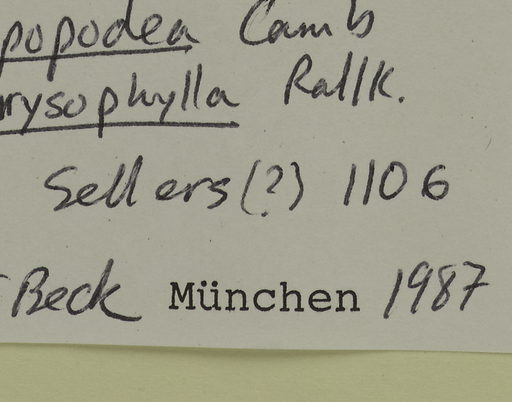 popodea Camb
rysophylla Rallk.
Sellers(?) 1106
Beck München 1987